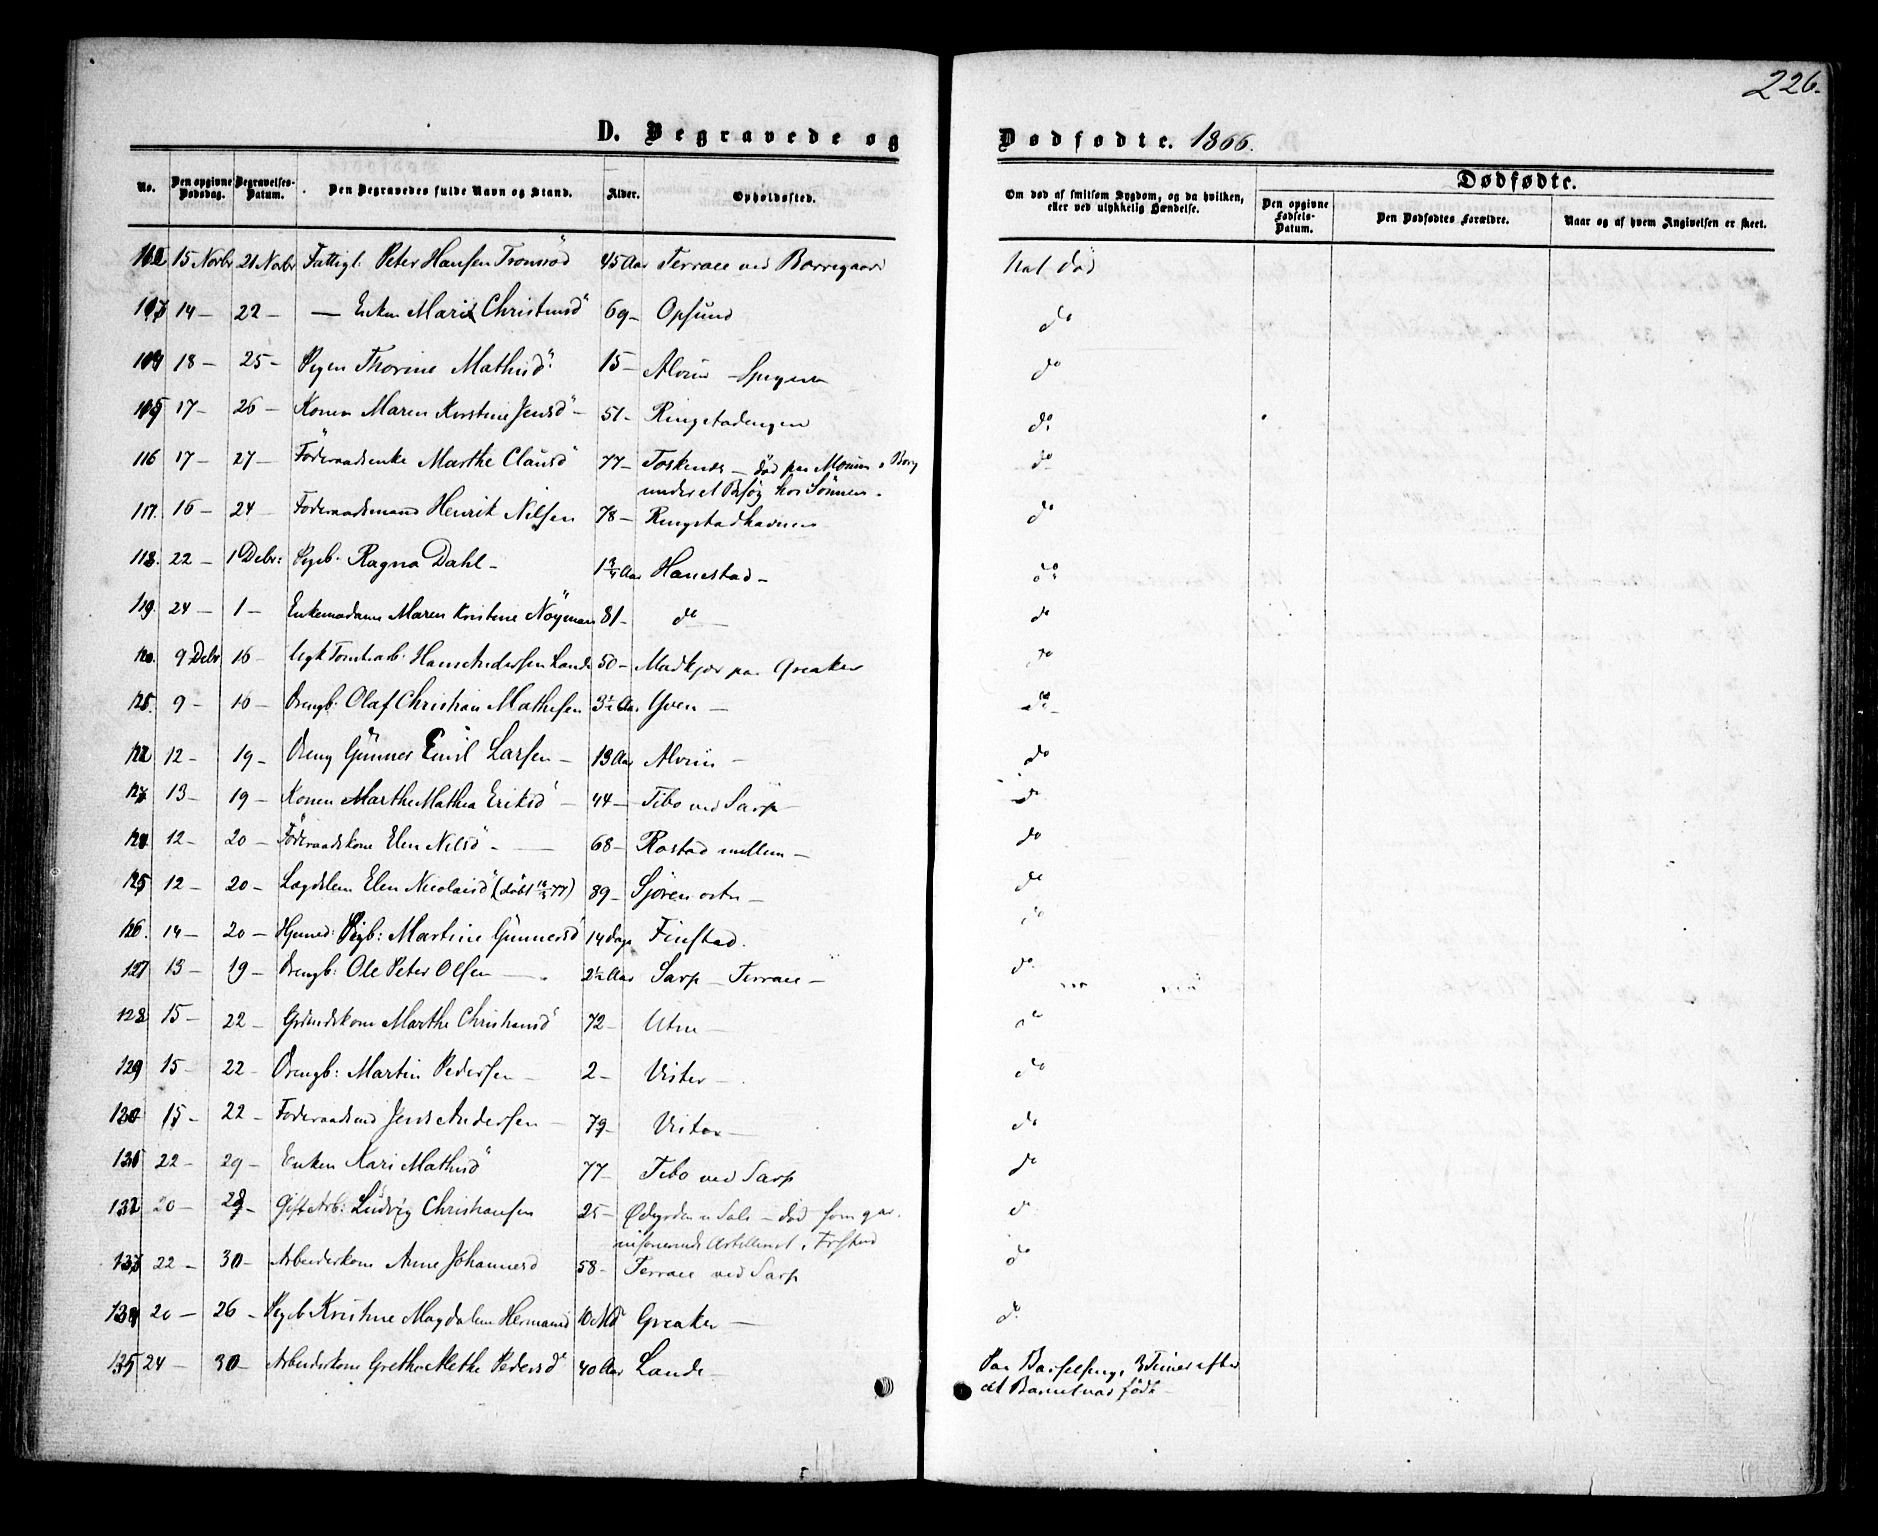 226.
D. Begravede og Dødfødte. 1866.
No. Den opgivne Dødsdag. Begravelses-Datum. Den Begravedes fulde Navn og Stand. Alder. Opholdssted. Om død af smitsom Sygdom, og da hvilken, eller ved ulykkelig Hændelse. Dødfødte. Den opgivne Fødsels-Datum. Den Dødfødtes Forældre. Naar og af hvem Angivelsen er skeet.
15 Novbr 21 Novbr Fattigl. Peter Hansen Tronsrød 45 Aar Terrace ved Borregaard Nat. død
14 — 22 — — Enken Christensd 69 — Opsund do
18 — 25 — Pigen Thorine Mathisd 15 — Alvim — Spigeren do
17 — 26 — Konen Maren Kirstine Jensd — 51 — Ringstadengen do
116 17 — 27 — Föderaadsenke Marthe Clausd 77 — Toskenes — död paa Moum i Borg do
under et Besög hos Sönnen.
117. 16 — 24 Föderaadsmand Henrik Nilsen 78 — Ringstadhavnen do
118. 22 — 1 Debr: Pigeb. Ragna Dahl — 1¾ Aar Hanestad — do
119. 24 — 1 — Enkemadame Maren Kristine Nöyman 81 — do — do
120. 9 Debr 16 — Ugk Tomtearb. Hans Andersen Lande 50 — Madkjær paa Greaker do
9 — 16 — Drengb: Olaf Christian Mathisen 3½ Aar Yven — do
122 12 — 19 — Dreng Günner Emil Larsen — 13 Aar Alvim — do
13 — 19 — Konen Marthe Mathea Eriksd — 44 — Tibo ved Sarp do
12 — 20 — Föderaadskone Elen Nilsd — 68 — Rostad mellem — do
125 12 — 20 — Lagdslem Elen Nicolaisd (döbt 77) 89 — Sjøren östre — do
126. 14 — 20 — Hjemmed: Pigb: Martine Gunnersd 14 Dage Finstad. do
127 13 — 19 — Drengb: Ole Peter Olsen — 2½ Aar Sarp — Terrace — do
128 15 — 22 — Gaardskone Marthe Christensd 72 — Utne — do
129 15 — 22 — Drengb: Martin Pedersen — 2 — Vister — do
130 15 — 22 — Föderaadsmd Jens Andersen — 79 — Vister — do
131 22 — 29 — Enken Kari Mathisd 77 — Tibo ved Sarp do
132 20 — 28 — Gift Arb: Ludvig Christiansen 25 — Ødegården u Sale — död som gar- do
nisonerende Artillerist i Frstad
133 22 — 30 — Arbeiderkone Anne Johannesd 58 — Terrace ved Sarp do
134 20 — 26 — Pigeb Kristine Magdalene Hermansd 10 Md Greaker — do
135 24 — 30 — Arbeiderkone Grethe Methe Pedersd 40 Aar Lande — Paa Barselseng, 3 Timer efter
at Barnet var födt —